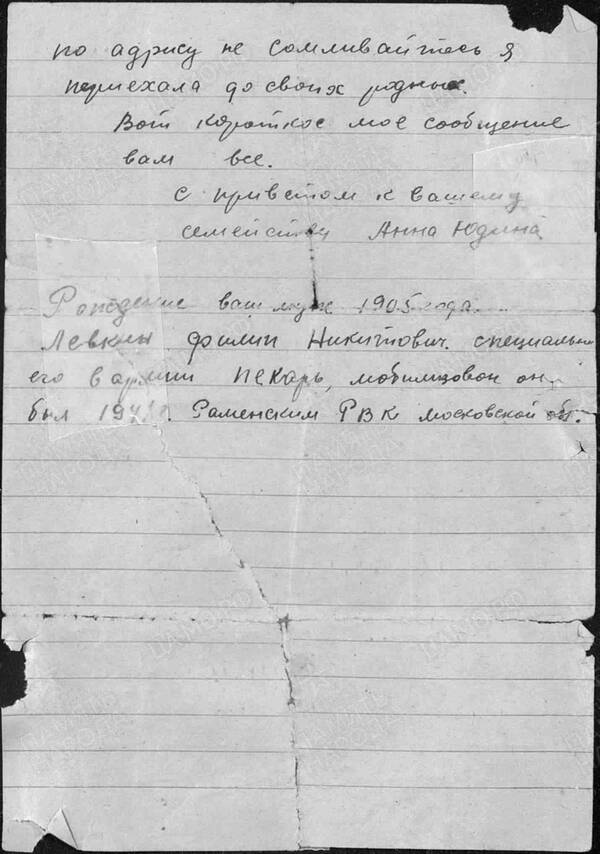 по адрису не сомливайтесь я
переехала до своих родных.
Вот короткое мое сообщение
вам все.
с приветом к вашему
семейству Анна Юдина
Рождение ваш муж 1905 года.
Левкин Филип Никитович. специально
его в армии пекарь, мобилизован он
был 194 г. Раменским РВК московской обл.